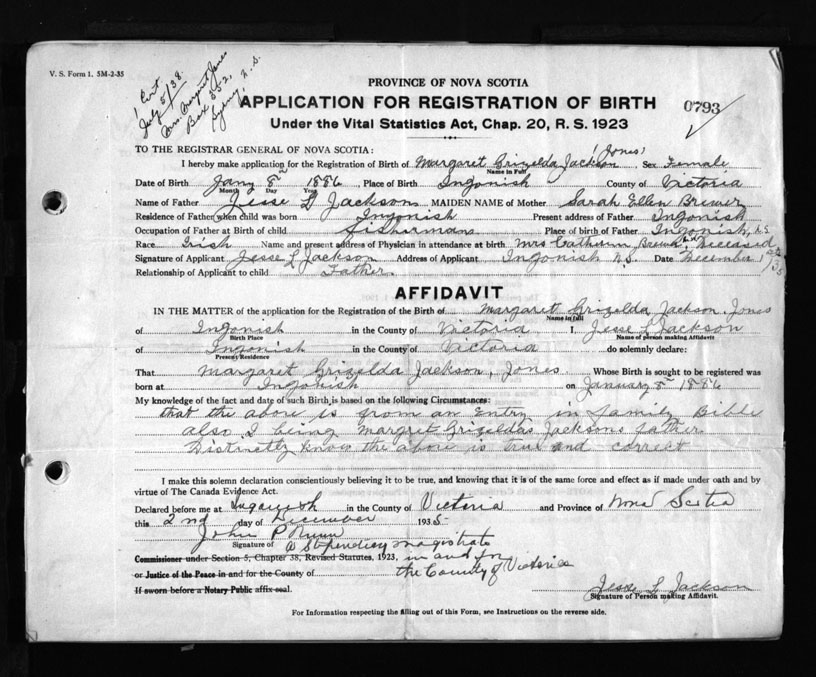 V. S. Form 1. 5M-2-35
1 Cert
July 5/38.
Mrs Margaret Jones
Box 552,
Sydney, N. S.
PROVINCE OF NOVA SCOTIA
APPLICATION FOR REGISTRATION OF BIRTH
0793
Under the Vital Statistics Act, Chap. 20, R. S. 1923
TO THE REGISTRAR GENERAL OF NOVA SCOTIA:
(Jones)
I hereby make application for the Registration of Birth of Margaret Grizelda Jackson Sex Female
Name in Full
Date of Birth Jany 8 1886, Place of Birth Ingonish County of Victoria
Month Day Year
Name of Father Jesse L Jackson MAIDEN NAME of Mother Sarah Ellen Brewer
Residence of Father when child was born Ingonish Present address of Father Ingonish
Occupation of Father at Birth of child fisherman Place of birth of Father Ingonish, N.S
Race Irish Name and present address of Physician in attendance at birth Mrs Deceased
Signature of Applicant Jesse L Jackson Address of Applicant Ingonish N.S. Date December
Relationship of Applicant to child Father
AFFIDAVIT
IN THE MATTER of the application for the Registration of the Birth of Margaret Grizelda Jackson, Jones
Name in full
of Ingonish in the County of Victoria I Jesse L Jackson
Birth Place Name of person making Affidavit
of Ingonish in the County of Victoria do solemnly declare:
Present Residence
That Margaret Grizelda Jackson, Jones Whose Birth is sought to be registered was
born at Ingonish on January 8 1886
My knowledge of the fact and date of such Birth is based on the following Circumstances:
that the above is from an Entry in family Bible
also I being Margret Grizeldas Jacksons father
Distinctly Know the above is true and correct
I make this solemn declaration conscientiously believing it to be true, and knowing that it is of the same force and effect as if made under oath and by
virtue of The Canada Evidence Act.
Declared before me at Ingonish in the County of Victoria and Province of Nova Scotia
this 2nd day of December 1935
John P
Signature of a Stipendiary magistrate
Commissioner under Section 5, Chapter 38, Revised Statutes, 1923, in and for
or Justice of the Peace in and for the County of the County of Victoria
If sworn before a Notary Public affix seal.
Jesse L Jackson
Signature of Person making Affidavit.
For Information respecting the filling out of this Form, see Instructions on the reverse side.